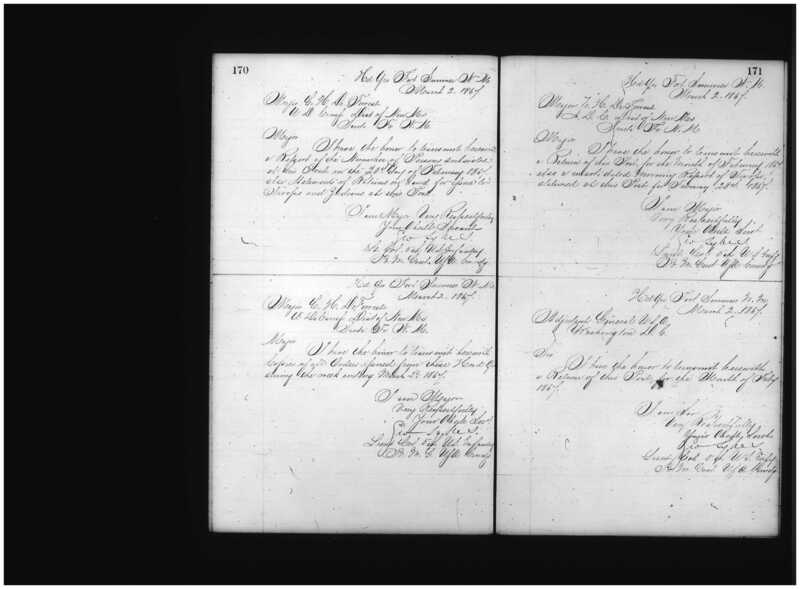 170
Hd Qrs Fort Sumner N. M.
March 2. 1867.
Major C. H. De Forrest
A. D. C. Dist of New Mex
Santa Fe N. M.
Major
I have the honor to transmit herewith
a Report of the Number of Persons subsisted
at this Post on the 28th Day of February 1867.
also Statements of Rations on hand for
Troops and Indians at this Post.
I am Major Very Respectfully
Your Obedt Servant
Geo Sykes
Lt Col. 5th U.S. Infantry
Bt. M. Genl. U.S.A. Comdg
Hd Qrs Fort Sumner N. M.
March 2. 1867.
Major C. H. De Forrest
Dist of New Mex
Santa Fe N. M.
Major
I have the honor to transmit herewith
Copies of all Orders issued from these Head Qrs
during the week ending March 2d 1867.
I am Major
Very Respectfully
Your Obedt Servt
Geo Sykes
Lieut Col 5th U.S. Infantry
Bt. M. G. U.S.A. Comdg
171
Hd Qrs Fort Sumner N. M.
March 2. 1867.
Major C. H. De Forrest
A. D. C. Dist of New Mex
Santa Fe N. M.
Major
I have the honor to transmit herewith
a Return of this Post, for the Month of February 1867
also a Morning Report of Troops
stationed at this Post for February 28th 1867.
I am Major
Very Respectfully
Your Obdt Servt
Geo Sykes
Lieut Col 5th U.S. Infty
Bt M Genl U.S.A Comdg
Hd Qrs Fort Sumner N. M.
March 2, 1867.
Adjutant General U.S.A.
Washington D.C.
Sir
I have the honor to transmit herewith
a Return of this Post, for the Month of Feby
1867.
I am Sir
Very Respectfully
Your Obedt Servt
Geo Sykes
Lieut Col 5th U.S. Infty
Bt M Genl U.S.A. Comdg